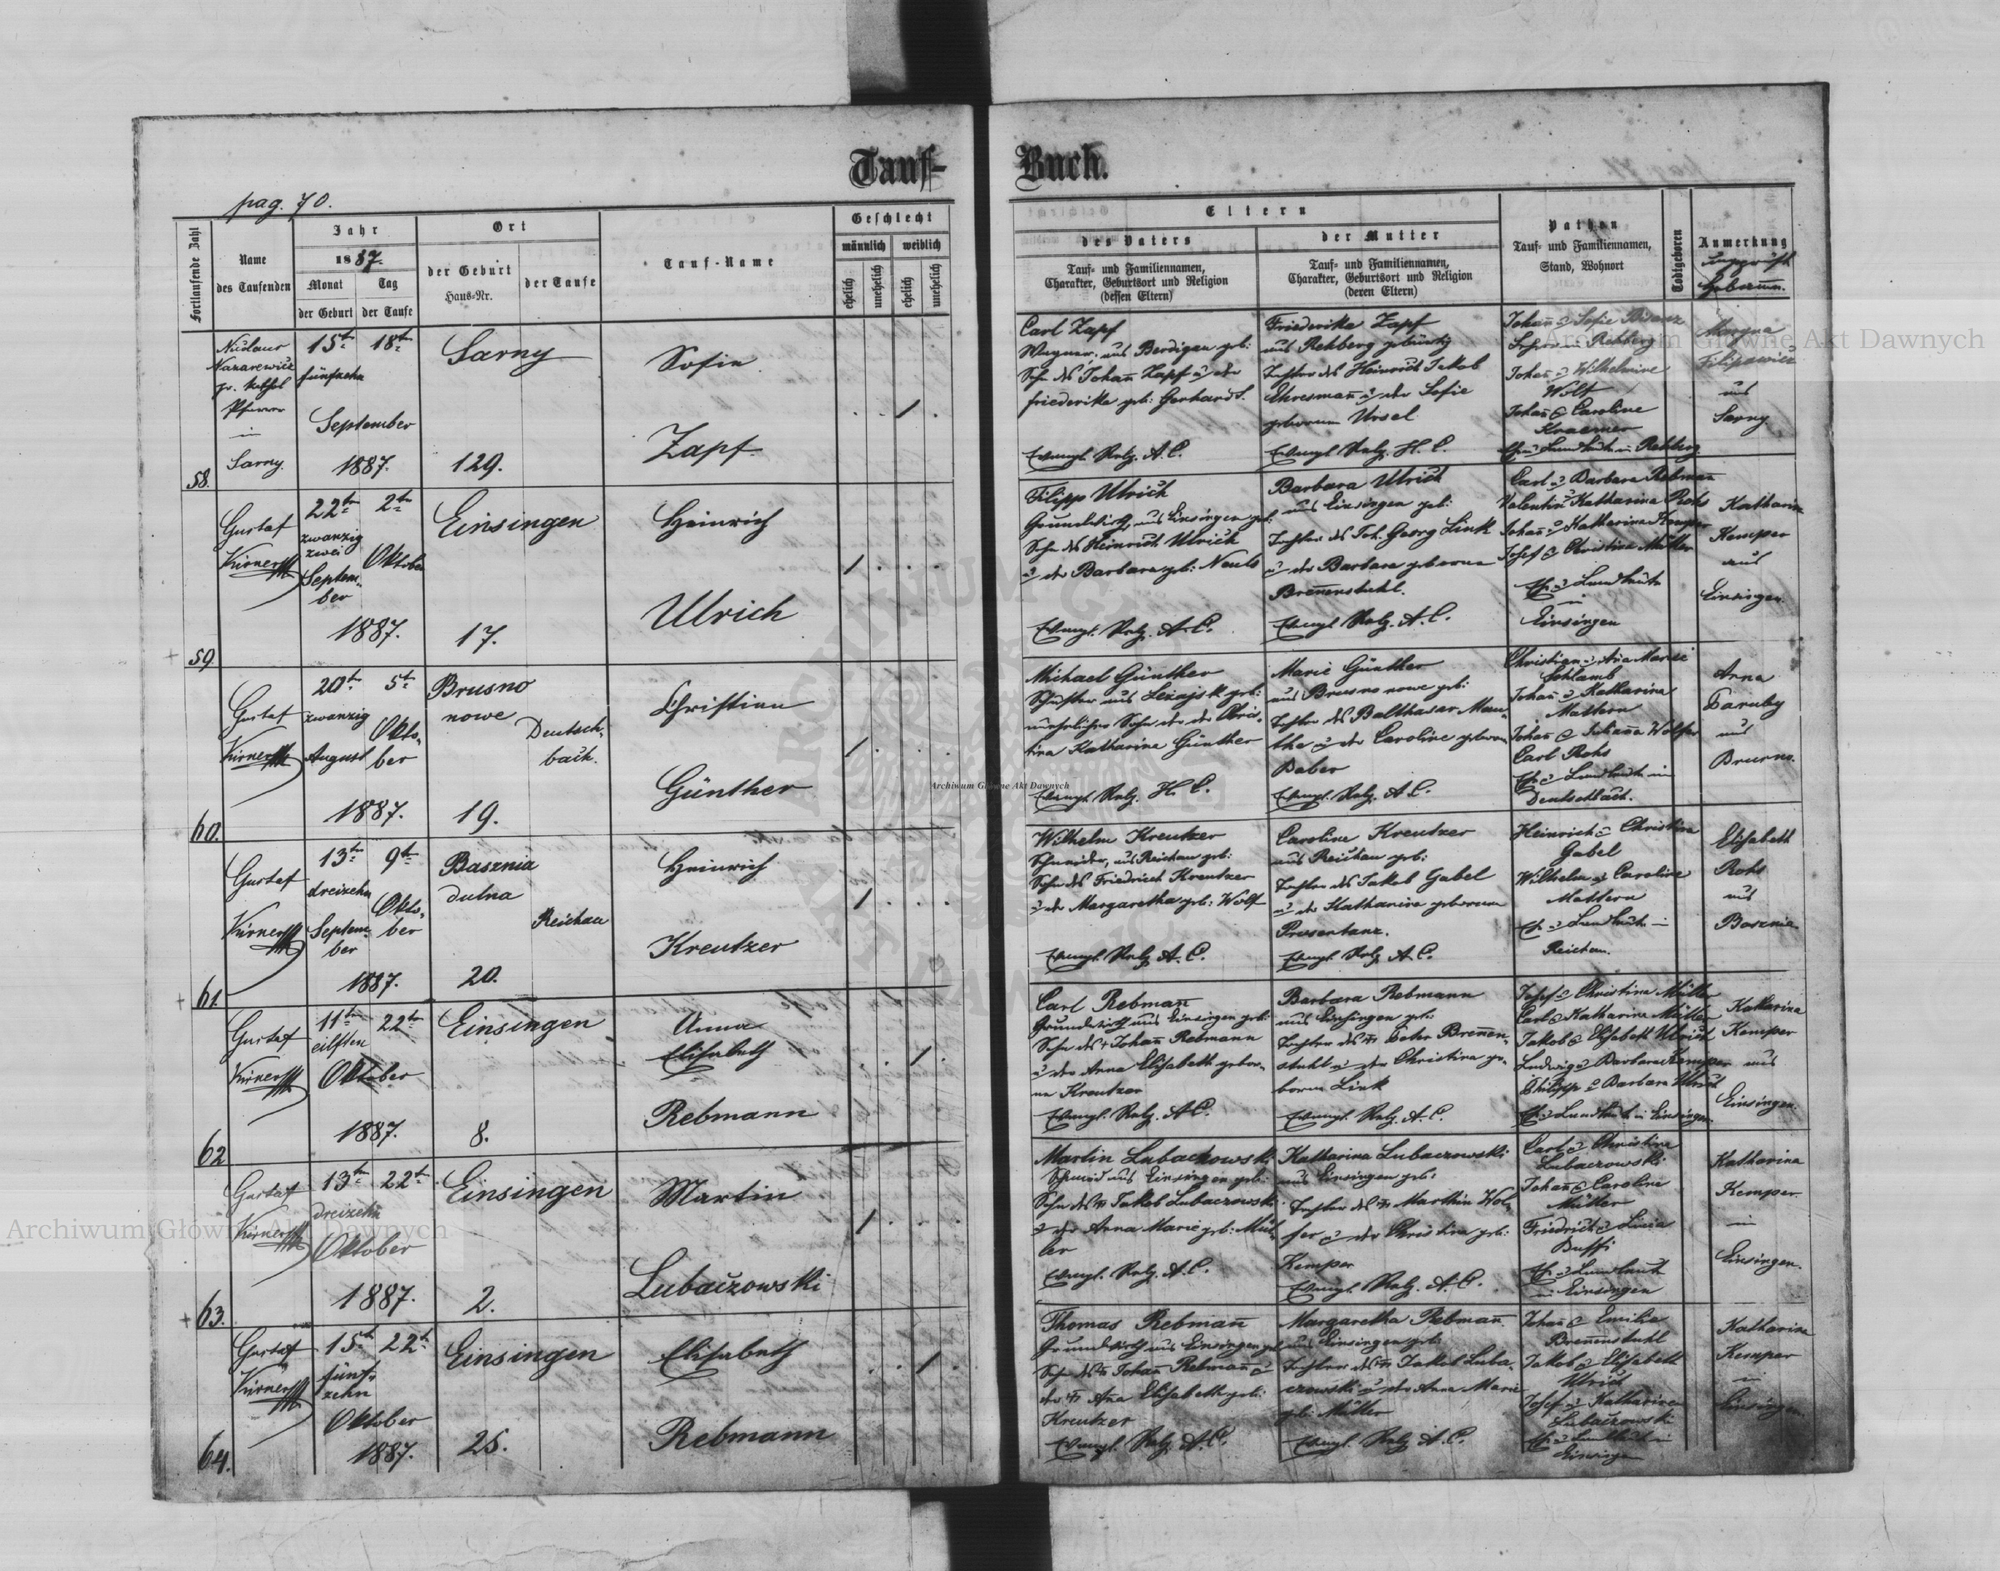 Tauf-Buch.
pag. 70.
Fortlaufende Zahl
Name
des Taufenden
Jahr
1887.
Monat
Tag
der Geburt
der Taufe
Ort
der Geburt
Haus-Nr.
der Taufe
Tauf-Name
Geschlecht
männlich
weiblich
ehelich
unehelich
ehelich
unehelich
Eltern
des Vaters
Tauf- und Familiennamen,
Charakter, Geburtsort und Religion
(dessen Eltern)
der Mutter
Tauf- und Familiennamen,
Charakter, Geburtsort und Religion
(deren Eltern)
Pathen
Tauf- und Familiennamen,
Stand, Wohnort
Todtgeboren
Anmerkung
58.
Nazarewicz
Pfarrer
in
Sarny.
15t 18t
fünfzehn
September
1887.
Sarny
129.
Sofia
Zapf
Carl Zapf
Wagner, aus Berdigau geb:
Sohn des Johañ Zapf u der
Friederika geb: Gerhards.
Evangl. Relg. A. C.
Friederika Zapf
aus Rehberg gebürtig
Tochter des Heinrich Jakob
Ehresmañ u der Sofie
geborenen Ursel
Evangl. Relg. H. C.
Johañ u Sofie Bisanz
Johañ u Wilhelmine
Wolf
Johañ u Caroline
Kraemer
Rehberg
Maryna
Filipowicz
aus
Sarny
59.
Gustaf
Kürner
22t 2t
zwanzig
zwei
Septem-
ber
Oktober
1887.
Einsingen
17.
Heinrich
Ulrich
Filipp Ulrich
Grundwirth, aus Einsingen geb:
Sohn des Heinrich Ulrich
u der Barbara geb: Neuls
Evangl. Relg. A. C.
Barbara Ulrich
aus Einsingen geb:
Tochter des Joh. Georg Link
u der Barbara geborene
Breñenstuhl.
Evangl. Relg. A. C.
Carl u Barbara Rebmañ
Valentin u Katharina Rohs
Johañ u Katharina Kemper
Josef u Christina Müller
in
Einsingen
Katharina
Kemper
aus
Einsingen.
60.
Gustaf
Kürner
20t 5t
zwanzig
August
Okto-
ber
1887.
Brusno
nowe
19.
Deutsch-
bach.
Christian
Günther
Michael Günther
Schuster aus Leżajsk geb:
unehelicher Sohn der Chris-
tina Katharina Günther
Evangl. Relg. H. C.
Marie Günther
aus Brusno nowe geb:
Tochter des Balthasar Man-
the u der Caroline geboren
Daber
Evangl. Relg. A. C.
Christian u Aña Marie
Schlamb
Johañ u Katharina
Mattern
Johañ u Juliaña Wolfer
Carl Rohs
Deutschbach.
Anna
aus
Brusno.
61.
Gustaf
Kürner
13t 9t
dreizehn
Septem-
ber
Okto-
ber
1887.
Basznia
dulna
20.
Reichau
Heinrich
Kreutzer
Wilhelm Kreutzer
Schneider, aus Reichau geb:
Sohn des Friedrich Kreutzer
u der Margaretha geb: Wolf
Evangl. Relg. A. C.
Caroline Kreutzer
aus Reichau geb:
Tochter des Jakob Gabel
u der Katharina geborenen
Evangl. Relg. A. C.
Heinrich u Christina
Gabel
Wilhelm u Caroline
Mattern
Reichau.
Elisabeth
Rohs
aus
Basznia
62
Gustaf
Kürner
11t 22t
eilften
Oktober
1887.
Einsingen
8.
Anna
Elisabeth
Rebmann
Carl Rebmañ
Grundwirth aus Einsingen geb:
Sohn des † Johañ Rebmann
u der Anna Elisabeth gebor-
ne Kreutzer
Evangl. Relg. A. C.
Barbara Rebmann
aus Einsingen geb:
Tochter des Peter Breñen-
stuhl u der Christina ge-
boren Link
Evangl. Relg. A. C.
Josef u Christina Müller
Carl u Katharina Müller
Jakob u Elisabeth Ulrich
Ludwig u Barbara Kemper
Philipp u Barbara Ulrich
Einsingen
Katharina
Kemper
aus
Einsingen.
63.
Gustaf
Kürner
13t 22t
dreizehn
Oktober
1887.
Einsingen
2.
Martin
Lubaczowski
Martin Lubaczowski
Schmied aus Einsingen geb:
Sohn des Jakob Lubaczowski
u der Anna Marie geb: Mül-
ler
Evangl. Relg. A. C.
Katharina Lubaczowski
aus Einsingen geb:
Tochter des Marthin Wol-
fer u der Christina geb:
Kemper
Evangl. Relg. A. C.
Carl u Christina
Lubaczowski
Johañ u Caroline
Müller
Friedrich u Lucia
Buffi
in Einsingen
Katharina
Kemper
in
Einsingen.
64.
Gustaf
Kürner
15t 22t
fünf-
zehn
Oktober
1887.
Einsingen
25.
Elisabeth
Rebmann
Thomas Rebmañ
Grundwirth aus Einsingen geb
Sohn des Johañ Rebmañ u
der Aña Elisabeth geb:
Kreutzer
Evangl. Relg. A. C.
Margaretha Rebmañ
aus Einsingen geb:
Tochter des Jakob Luba-
czowski u der Anna Marie
geb: Müller
Evangl. Relg. A. C.
Johañ u Emilie
Breñenstuhl
Jakob u Elisabeth
Ulrich
Josef u Katharina
Lubaczowski
Einsingen
Katharina
Kemper
in
Einsingen
Archiwum Główne Akt Dawnych
Archiwum Główne Akt Dawnych
Archiwum Główne Akt Dawnych